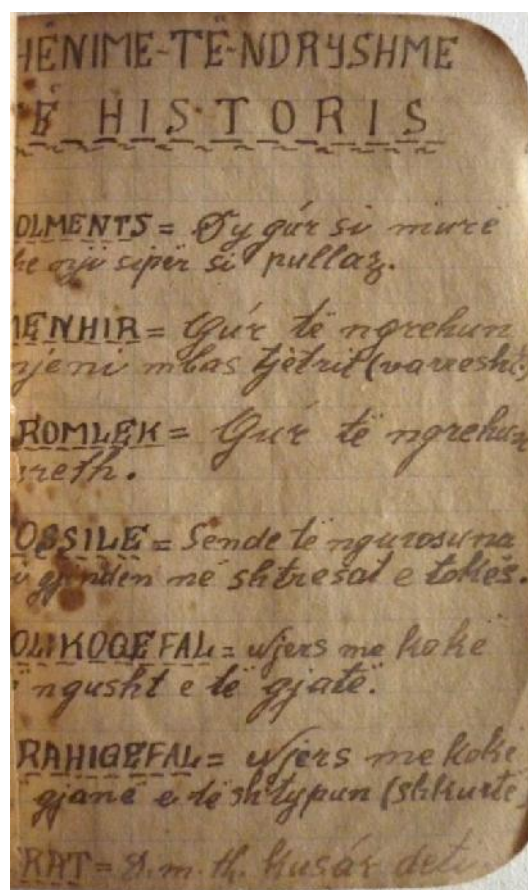 HËNIME-TË-NDRYSHME
Ë HISTORIS
OLMENTS = Dy gúr si murë
he nji sipër si pullaz.
ENHIR = Gúr të ngrehun
njeni mbas tjetrit (varresht)
ROMLEK = Gúr të ngrehun
rreth.
OSSILE = Sende të ngurosuna
gjinden në shtresat e tokës.
OLIKOQEFAL = Njers me kokë
ngusht e të gjatë.
RAHIQEFAL = Njers me kokë
gjanë e të shtypun (shkurtë
RAT = D.m.th. kusár deti.